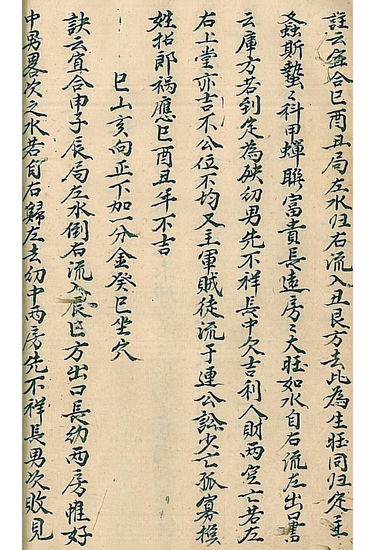 註云宜合巳酉丑局左水归右流入丑艮方去此為生旺同归定主
螽斯蟄〻科甲蟬聯富貴長遠房〻大旺如水自右流左出書
云庫方若到定為缺幼男先不祥長中欠吉利人財兩空亡若左
右上堂亦吉不公位不均又主軍賊徒流于連公訟少亡孤寡
姓招郎禍應巳酉丑年不吉
巳山亥向正下加一分金癸巳坐穴
訣云宜合申子辰局左水倒右流入辰巳方出口長幼两房惟好
中男畧次之水若自右歸左去幼中两房先不祥長男次敗見